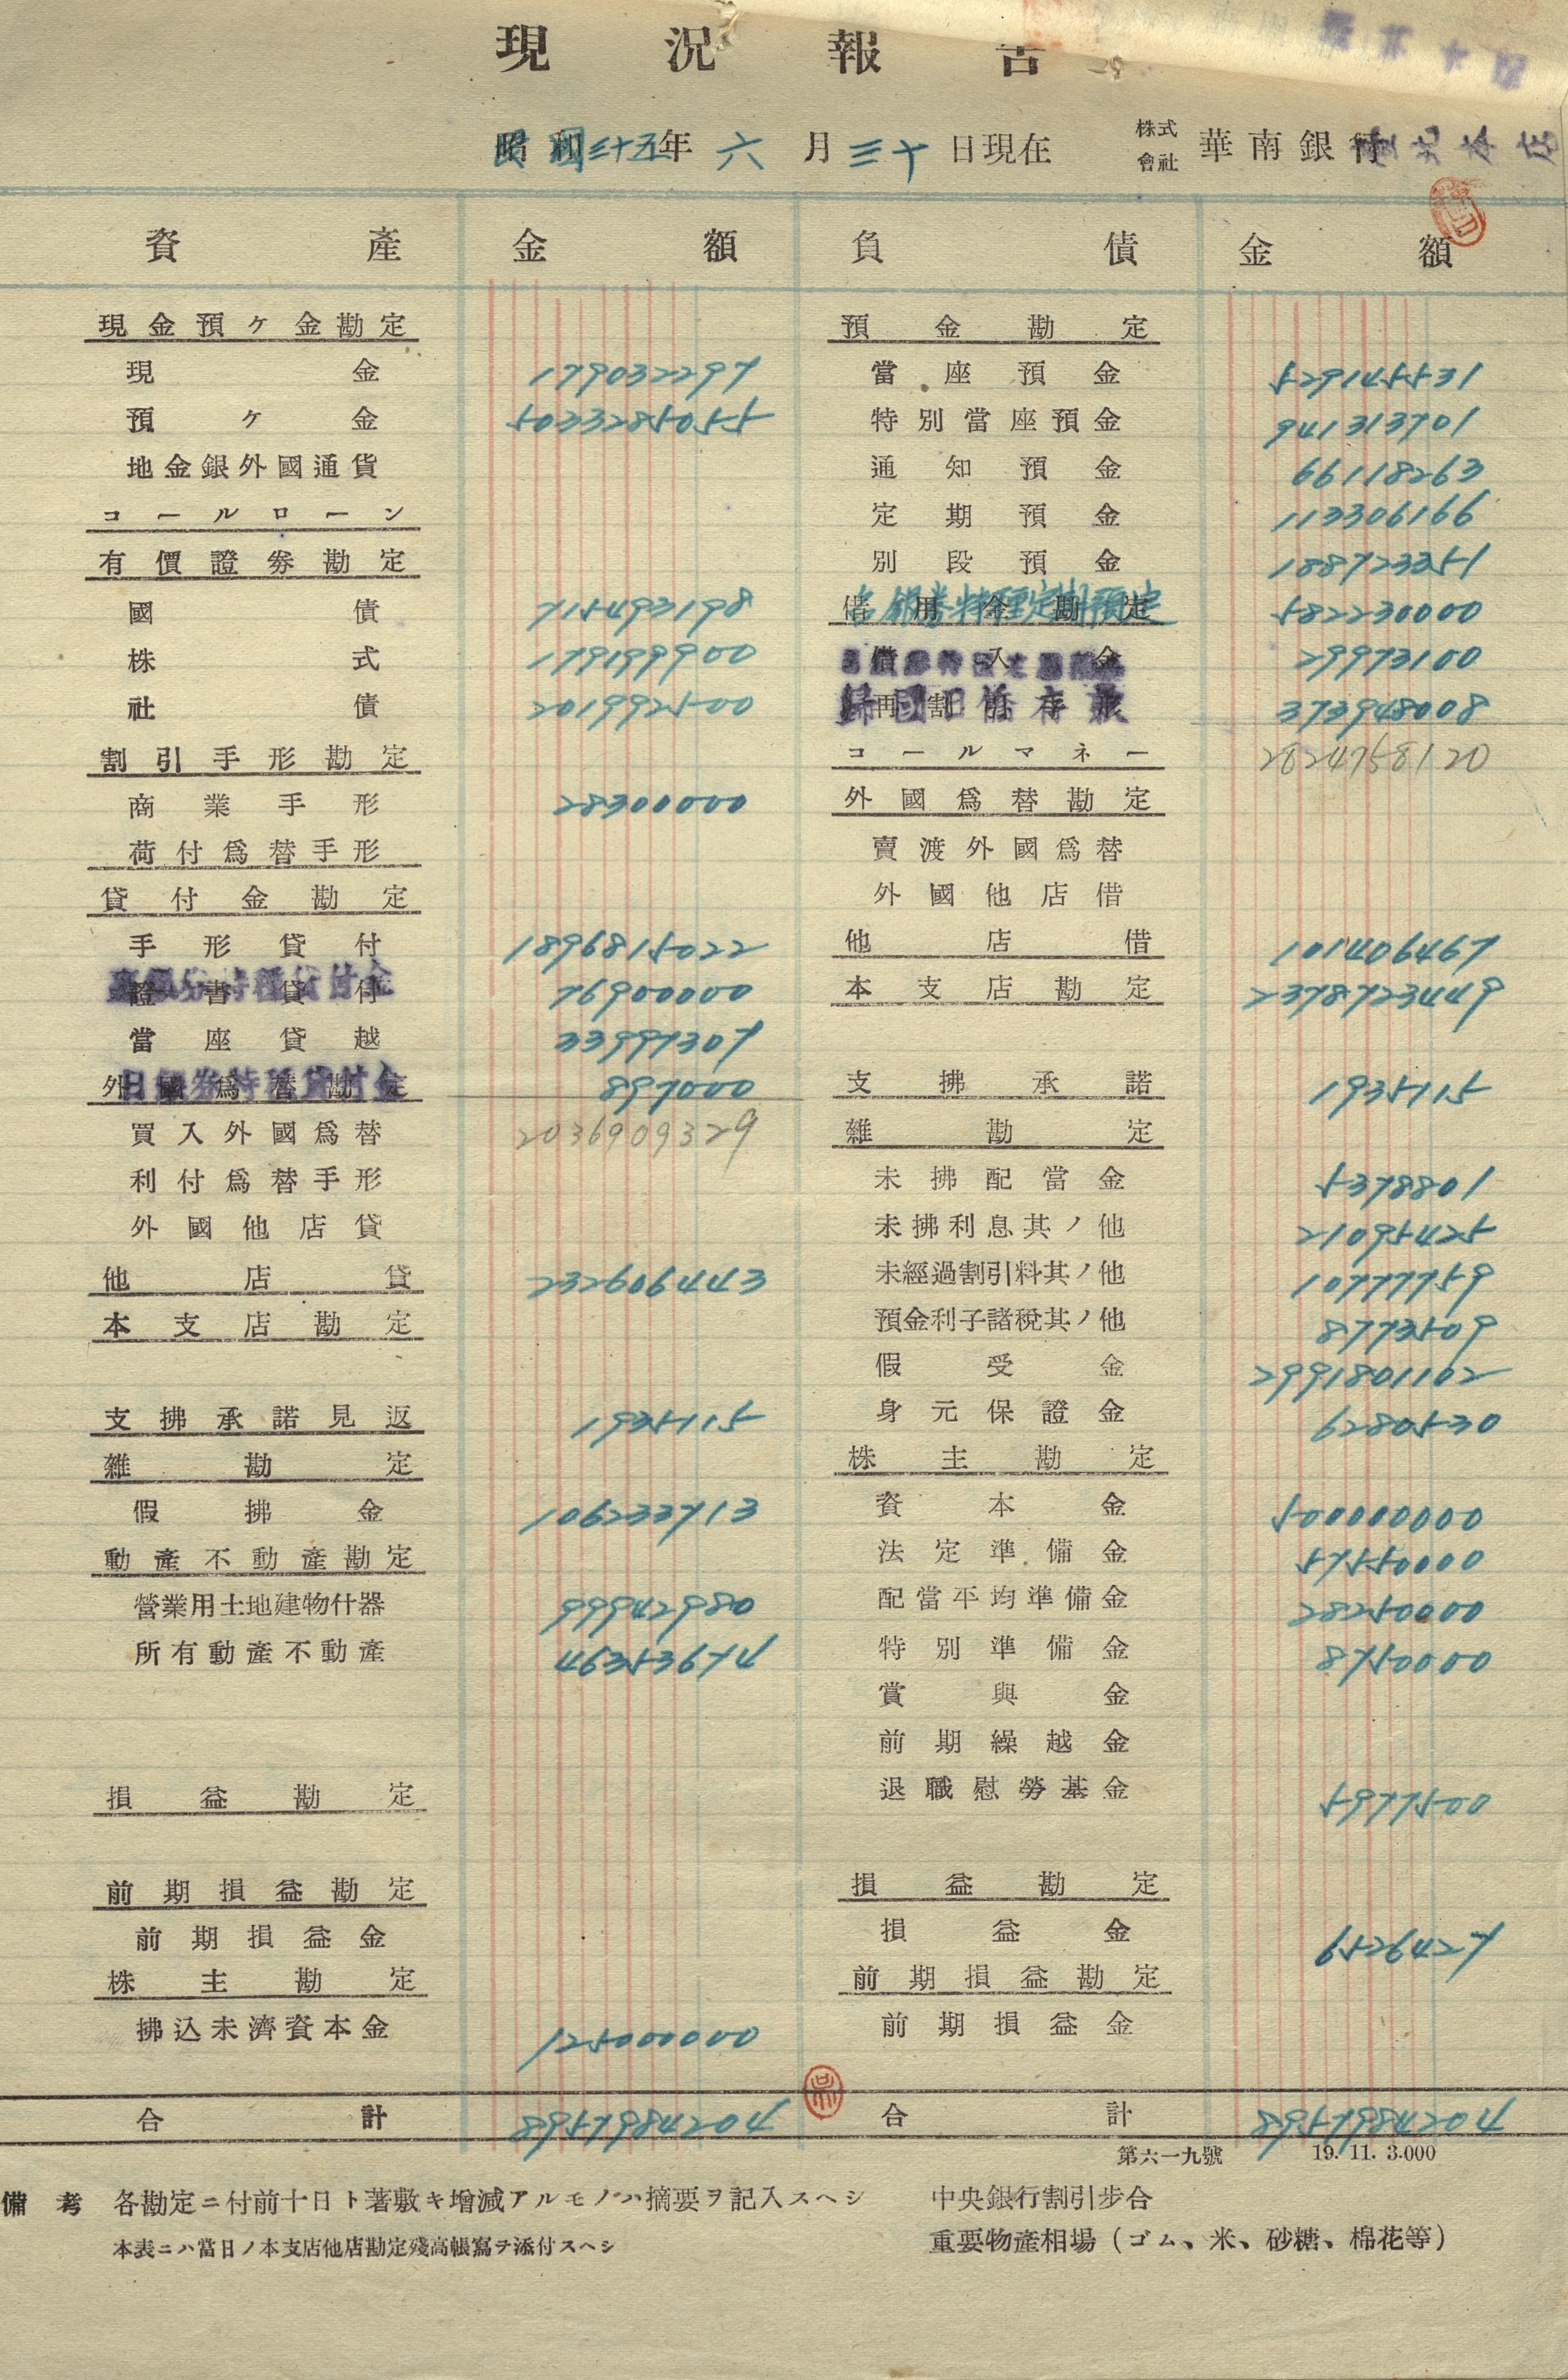 現況報告
民國三十五年六月三十日現在 株式會社華南銀行臺北本店
資產 金額 負債 金額
現金預ケ金勘定 預金勘定
現金 179032297 當座預金 529145531
預ケ金 5033285055 特別當座預金 941313701
地金銀外國通貨 通知預金 66118263
コールローン 定期預金 113306166
有價證劵勘定 別段預金 188723351
國債 715493198 借用金勘定 582230000
株式 179199900 借入金 29973100
社債 201992500 歸國日僑存款 373948008
割引手形勘定 コールマネー 2824758120
商業手形 28300000 外國爲替勘定
荷付爲替手形 賣渡外國爲替
貸付金勘定 外國他店借
手形貸付 1896815022 他店借 101406467
證書貸付 76900000 本支店勘定 2378723449
當座貸越 33997307
外國爲替勘定 日銀券特種貸付金 897000 支拂承諾 1935115
買入外國爲替 2036909329 雜勘定
利付爲替手形 未拂配當金 5378801
外國他店貸 未拂利息其ノ他 21095425
他店貸 232606443 未經過割引料其ノ他 10777759
本支店勘定 預金利子諸稅其ノ他 8773509
假受金 2991801102
支拂承諾見返 1935115 身元保證金 6280530
雜勘定 株主勘定
假拂金 106233713 資本金 500000000
動產不動產勘定 法定準備金 57550000
營業用土地建物什器 99942980 配當平均準備金 28250000
所有動產不動產 46353674 特別準備金 8750000
賞與金
前期繰越金
損益勘定 退職慰勞基金 5977500
前期損益勘定 損益勘定
前期損益金 損益金 6526427
株主勘定 前期損益勘定
拂込未濟資本金 125000000 前期損益金
合計 8957984204 合計 8957984204
第六一九號 19. 11. 3.000
備考 各勘定ニ付前十日ト著敷キ增減アルモノハ摘要ヲ記入スヘシ 中央銀行割引步合
本表ニハ當日ノ本支店他店勘定殘高帳寫ヲ添付スヘシ 重要物產相場(ゴム、米、砂糖、棉花等)